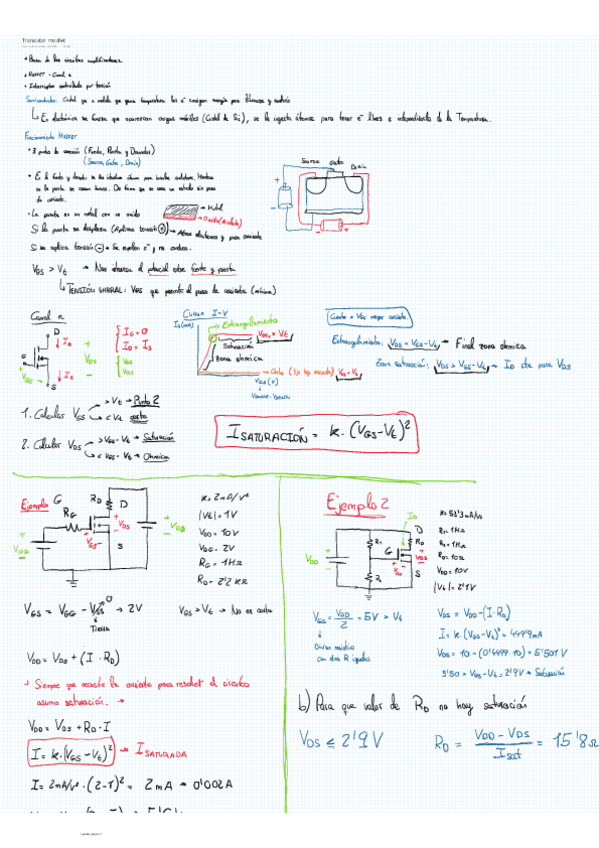 Transistor mosfet
• Base de los circuitos amplificadores.
• MOSFET - Canal n
• Interruptor controlado por tensión
Semiconductor: Cristal que a medida que gana temperatura los e⁻ consiguen energía para liberarse y conducir
↳ En electrónica se fuerza que aparezcan cargas móviles (Cristal de Si), se le inyecta átomos para tener e⁻ libres e independizarlo de la Temperatura.
Funcionamiento MOSFET
• 3 puntos de conexión (Fuente, Puerta y Drenador)
(Source, Gate, Drain)
Source Gate Drain
• La puerta es un metal con un óxido
Metal
Si la puerta se
(Aplicamos tensión ⊕) → Atrae electrones y pasa corriente
Si se aplica tensión ⊖ → Se repelen e⁻ y no conduce.
VGS > Vt → Nos interesa el potencial entre fuente y puerta
↳ TENSIÓN UMBRAL: VGS que permite el paso de corriente (mínima)
Canal n
D
G
S
ID
VGS
VDS
IG = 0
ID = IS
Curva I-V
ID (mA)
Estrangulamiento
Saturación
VGS > Vt
Zona ohmica
Corte (No hay corriente)
VDS (V)
Cuanto + VGS mayor corriente
Estrangulamiento: VDS = VGS-Vt → Final zona ohmica
Zona saturación: VDS > VGS-Vt → ID cte para VDS
1. Calcular VGS
> Vt → Punto 2
< Vt corte
2. Calcular VDS
> VGS-Vt → Saturación
< VGS-Vt → Ohmica
ISATURACIÓN = k·(VGS-Vt)²
Ejemplo
G
RG
RD
D
VDS
VGS
S
VDD
VGG
k = 2mA/V²
|Vt| = 1V
VDD = 10V
VGG = 2V
RG = 1MΩ
RD = 2'2 kΩ
VGS = VGG - VS⁰ → 2V
Tierra
VGS > Vt → No es corte
VDD = VDS + (I · RD)
+ Siempre que necesite la corriente para resolver el circuito
asumo saturación. →
VDD = VDS + RD · I
I = k·(VGS-Vt)² → ISATURADA
I = 2mA/V² · (2-1)² = 2mA → 0'002A
Ejemplo 2
ID
VDD
R1
R2
G
D
RD
VDS
VGS
S
R1 = 1MΩ
R2 = 1MΩ
RD = 10Ω
VDD = 10V
|Vt| = 2'1V
VGS = VDD/2 = 5V > Vt
Divisor
con dos R iguales
VDS = VDD - (I·RD)
I = k·(VGS-Vt)² = 449'9mA
VDS = 10 - (0'4499·10) = 5'501V
5'50 > VGS-Vt = 2'9V → Saturación
b) Para que valor de RD no hay saturación
VDS ≤ 2'9V
RD = VDD - VDS / Isat = 15'8Ω